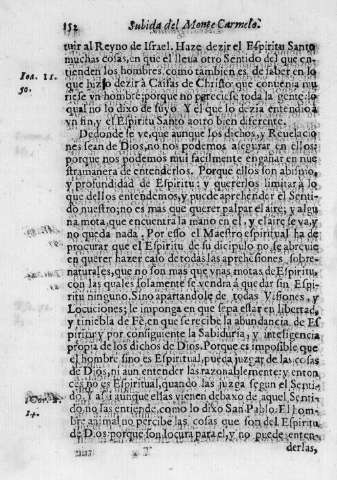 152 Subida del Monte Carmelo.
tuir al Reyno de Israel. Haze dezir el Espiritu Santo
muchas cosas, en que el lleua otro Sentido del que en-
tienden los hombres, como tambien es de saber en lo
Ioa. 11.
50.
que hizo dezir à Caifas de Christo: que conuenia mu
riese vn hombre porque no pereciese toda la gente: lo
qual no lo dixo de suyo. Y el que lo dezia entendio à
vn fin, y el Espiritu Santo à otro bien diferente.
Dedonde se ve, que aunque los dichos, y Reuelacio
nes sean de Dios, no nos podemos asegurar en ellos:
porque nos podemos mui facilmente engañar en nue
stra manera de entenderlos. Porque ellos son abismo,
y profundidad de Espiritu: y quererlos limitar à lo
que dellos entendemos, y puede aprehender el Senti-
do nuestro; no es mas que querer palpar el aire; y algu
na mota, que encuentra la mano en el, y el aire se va, y
no queda nada. Por eso el Maestro espiritual ha de
procurar que el Espiritu de su dicipulo no se abreuie
en querer hazer caso de todas las aprehensiones sobre-
naturales, que no son mas que vnas motas de Espiritu,
con las quales solamente se vendrà á quedar sin Espi-
ritu ninguno. Sino apartandole de todas Visiones, y
Locuciones; le imponga en que sepa estar en libertad,
y tiniebla de Fè, en que se recibe la abundancia de Es
piritu: y por consiguiente la Sabiduria, y inteligencia
propia de los dichos de Dios. Porque es imposible que
el hombre sino es Espiritual, pueda juzgar de las cosas
de Dios, ni aun entender las razonablemente: y enton
ces no es Espiritual, quando las juzga segun el Senti-
1. Cor. 2.
14.
do. Y asi aunque ellas vienen debaxo de aquel Senti-
do, no las entiende, como lo dixo San Pablo. El hom-
bre animal no percibe las cosas que son del Espiritu
de Dios: porque son locura para el, y no puede enten-
derlas,